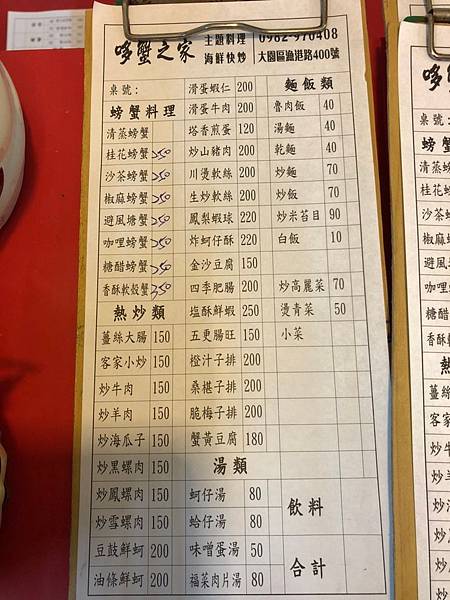 哆蟹之家
主題料理 0982-970408
海鮮快炒 大園區漁港路400號
桌號: 滑蛋蝦仁 200 麵飯類
螃蟹料理 滑蛋牛肉 200 魯肉飯 40
清蒸螃蟹 塔香煎蛋 120 湯麵 40
桂花螃蟹 250 炒山豬肉 200 乾麵 40
沙茶螃蟹 250 川燙軟絲 200 炒麵 70
椒麻螃蟹 250 生炒軟絲 200 炒飯 70
避風塘蟹 250 鳳梨蝦球 220 炒米苔目 90
咖哩螃蟹 250 炸蚵仔酥 220 白飯 10
糖醋螃蟹 250 金沙豆腐 150
香酥軟殼蟹 350 四季肥腸 200 炒高麗菜 70
熱炒類 塩酥鮮蝦 250 燙青菜 50
薑絲大腸 150 五更腸旺 150 小菜
客家小炒 150 橙汁子排 200
炒牛肉 150 桑椹子排 200
炒羊肉 150 脆梅子排 200
炒海瓜子 150 蟹黃豆腐 180
炒黑螺肉 150 湯類
炒鳳螺肉 150 蚵仔湯 80 飲料
炒雪螺肉 150 蛤仔湯 80
豆鼓鮮蚵 200 味噌蛋湯 50 合計
油條鮮蚵 200 福菜肉片湯 80
桌號:
螃蟹
清蒸螃
桂花螃
沙茶螃
椒麻螃
避風塘
咖哩螃
糖醋螃
香酥軟
熱
薑絲
客家
炒牛
炒羊
炒海
炒黑
炒鳳
炒雪
豆鼓
油條